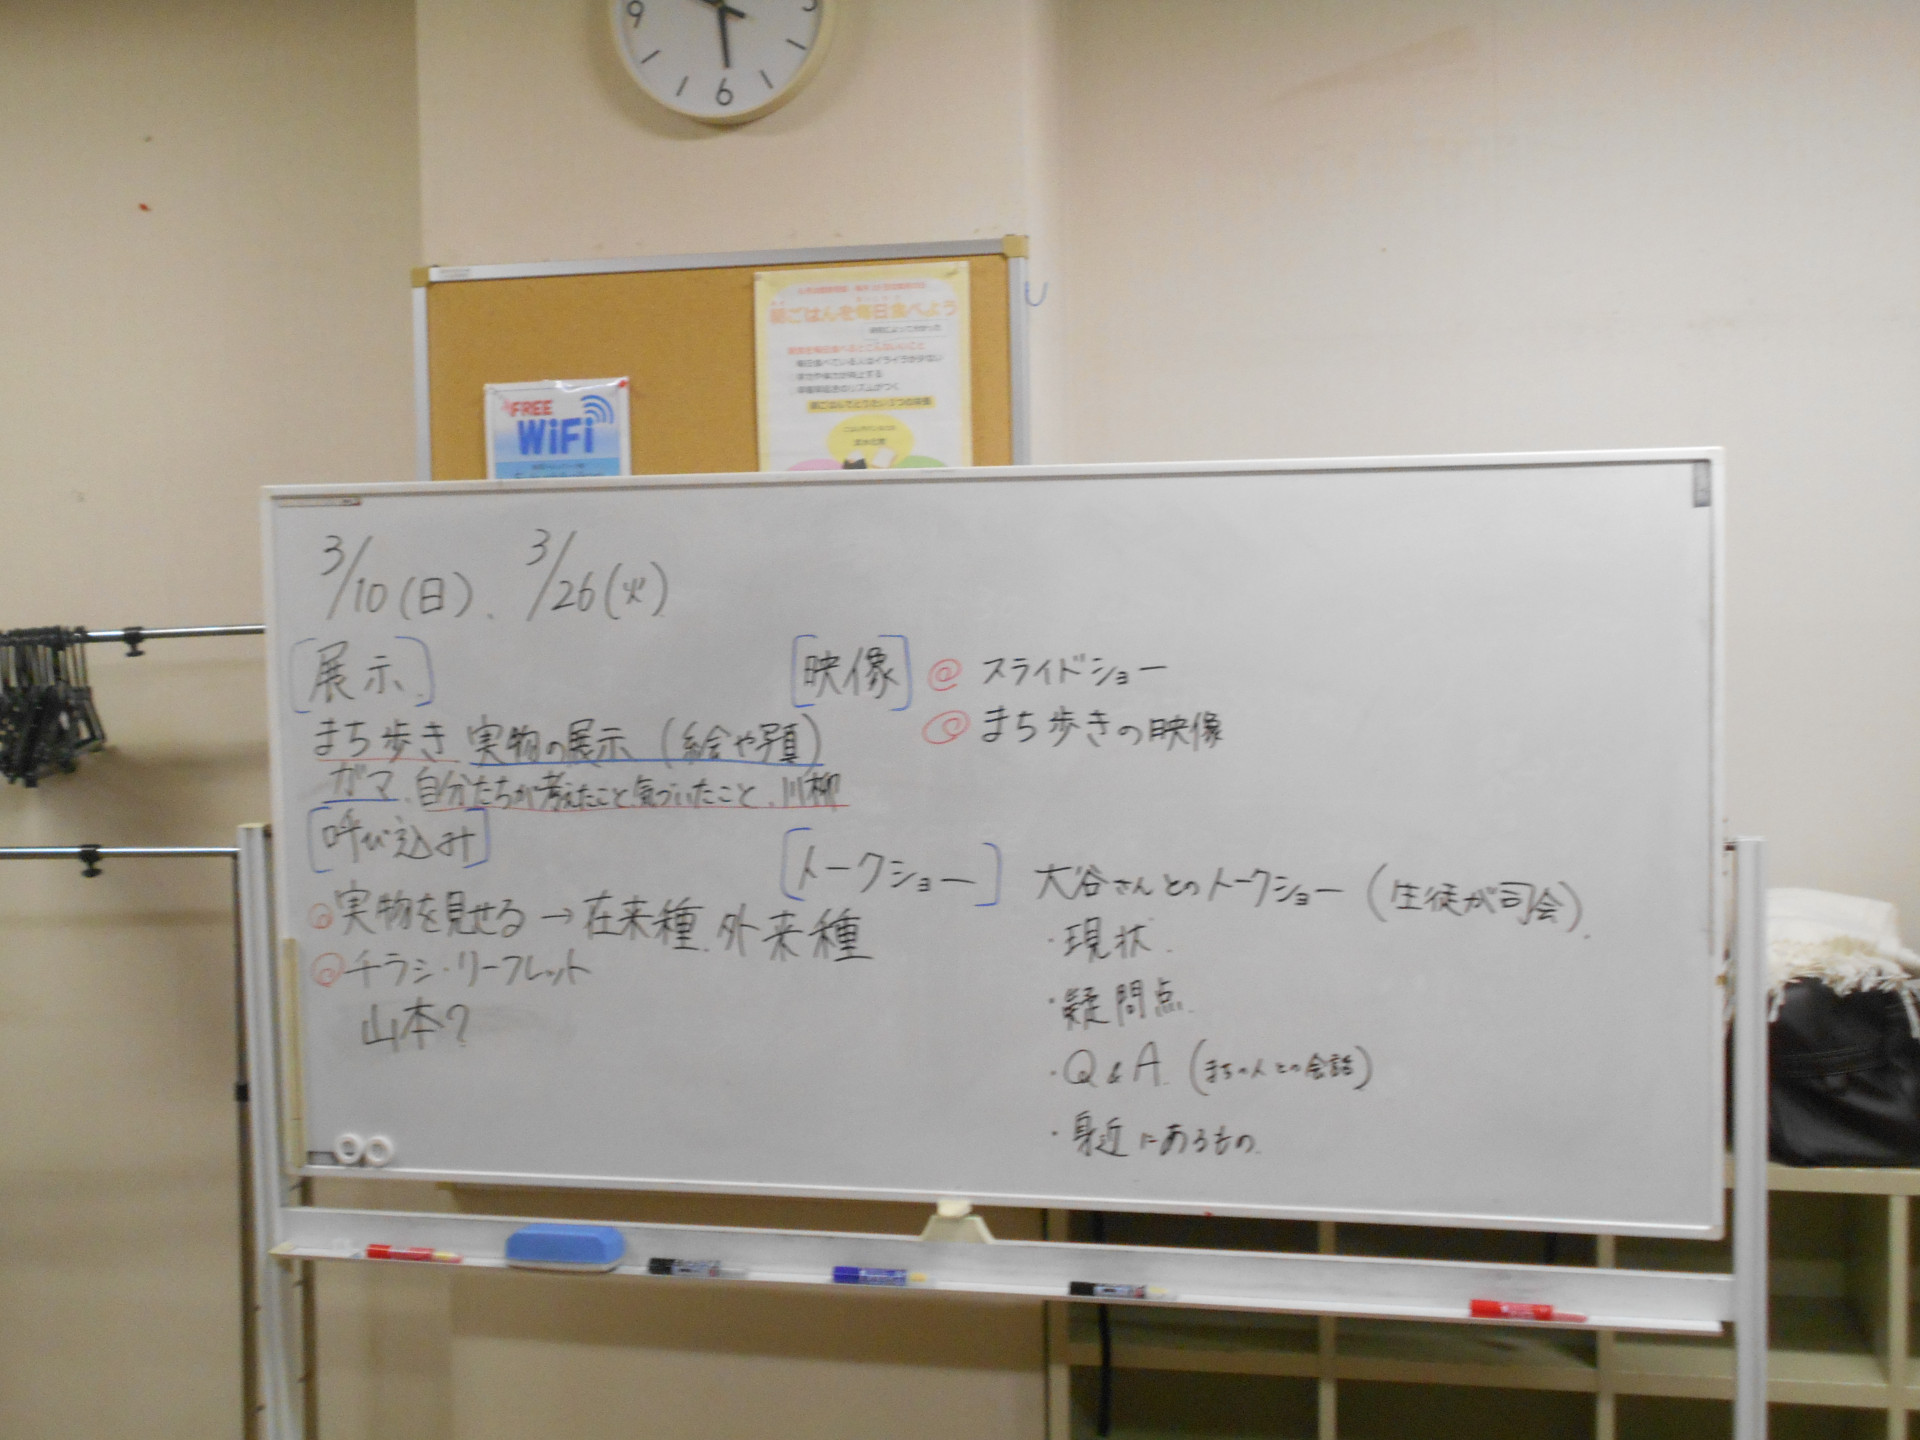 9
3
6
朝ごはんを毎日食べよう
毎日食べている人はイライラが少ない
FREE
WiFi
3/10(日)、3/26(火)
[展示]
まち歩き 実物の展示(絵や写真)
ガマ、自分たちが考えたこと、気づいたこと、川柳
[呼び込み]
実物を見せる→在来種、外来種
チラシ・リーフレット
山本?
[映像] スライドショー
まち歩きの映像
[トークショー] 大谷さんとのトークショー(生徒が司会)
・現状
・疑問点
・Q&A(まちの人との会話)
・身近にあるもの